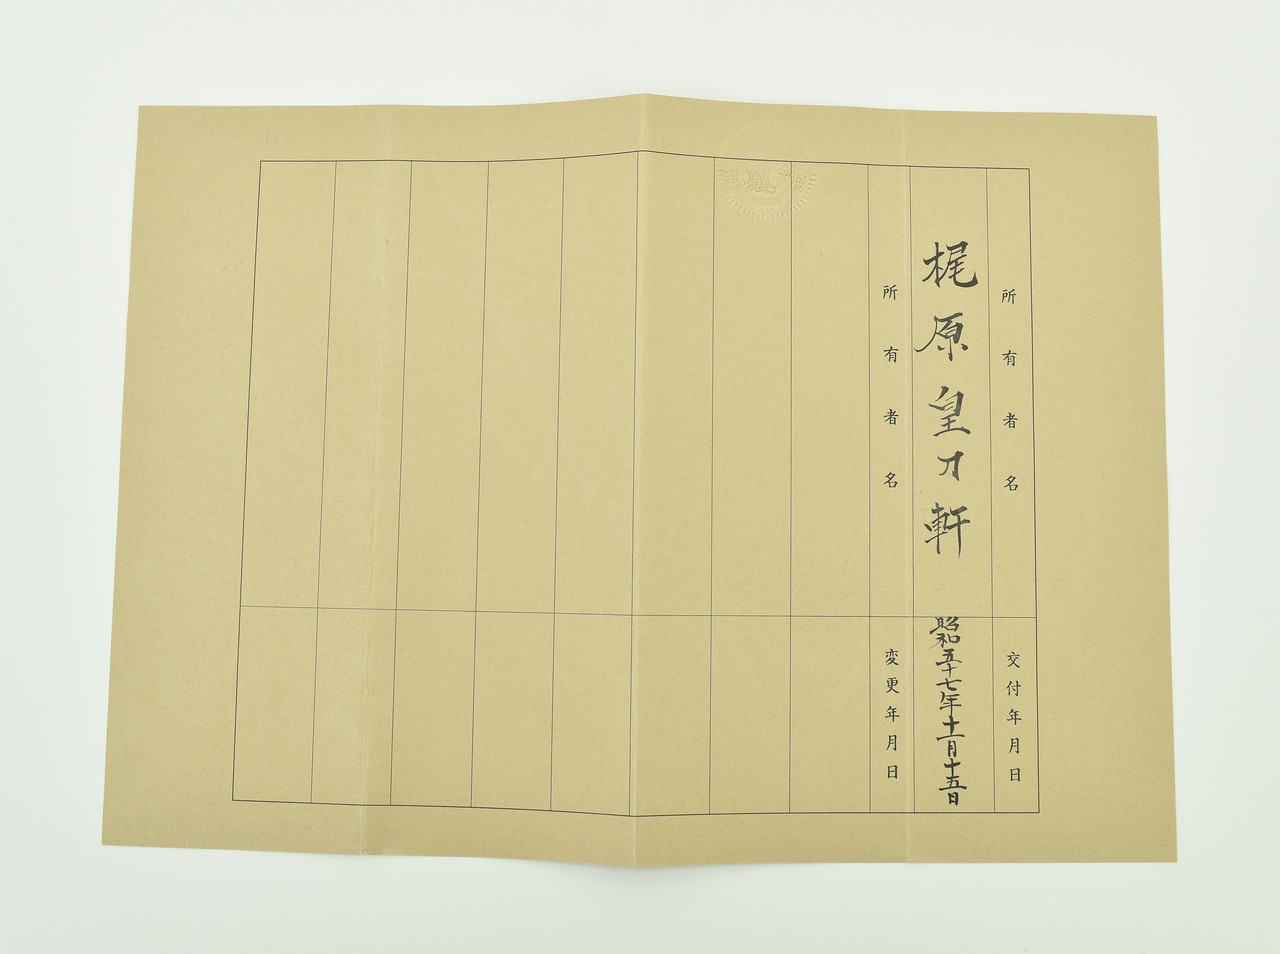 所有者名
交付年月日
梶原皇刀軒
昭和五十七年十一月十五日
所有者名
変更年月日